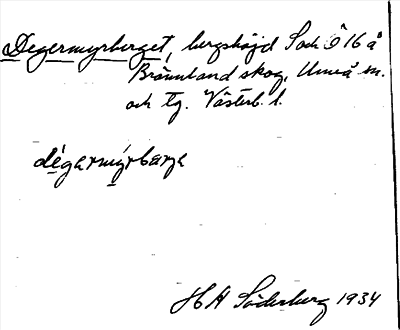 Degermyrberget, bergshöjd S och Ö 16 å
Brännland skog, Umeå sn.
och tg. Västerb. l.
dégarmýrbarja
H A Söderberg 1934